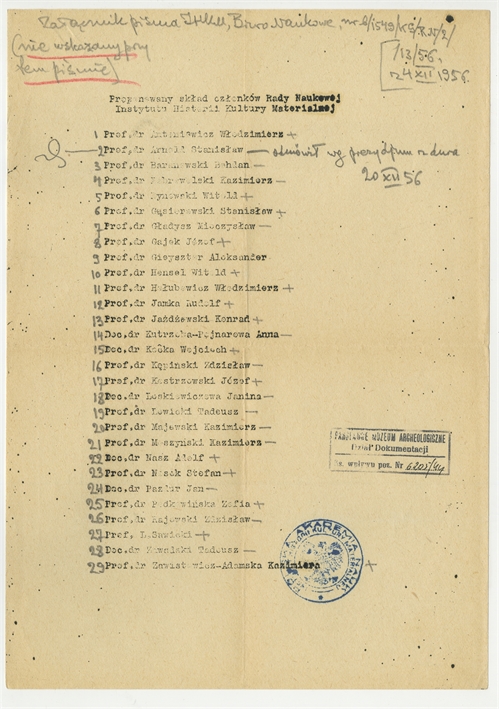 Załącznik pisma IHKM, Biuro Naukowe, nr
(nie wskazany przy
tem piśmie)
/13/56.
z 4 XII 1956.
Proponowany skład członków Rady Naukowej
Instytutu Historii Kultury Materialnej
1 Prof.dr Antoniewicz Włodzimierz +
2 Prof.dr Arnold Stanisław — odmówił wg prezydium z dnia
20 XII 56
3 Prof.dr Baranowski Bohdan —
4 Prof.dr Dobrowolski Kazimierz —
5 Prof.dr Dynowski Witold +
6 Prof.dr Gąsiorowski Stanisław +
7 Prof.dr Gładysz Mieczysław —
8 Prof.dr Gajek Józef +
9 Prof.dr Gieysztor Aleksander
10 Prof.dr Hensel Witold +
11 Prof.dr Hołubowicz Włodzimierz +
12 Prof.dr Jamka Rudolf +
13 Prof.dr Jażdżewski Konrad +
14 Doc.dr Kutrzeba-Pojnarowa Anna —
15 Doc.dr Kočka Wojciech +
16 Prof.dr Kępiński Zdzisław —
17 Prof.dr Kostrzewski Józef +
18 Doc.dr Leskiewiczowa Janina —
19 Prof.dr Lewicki Tadeusz —
20 Prof.dr Majewski Kazimierz —
21 Prof.dr Moszyński Kazimierz —
22 Doc.dr Nasz Adolf +
23 Prof.dr Nosek Stefan +
24 Doc.dr Pazdur Jan —
25 Prof.dr Podkowińska Zofia +
26 Prof.dr Rajewski Zdzisław —
27 Prof. L.Sawicki +
28 Doc.dr Kowalski Tadeusz —
29 Prof.dr Zawistowicz-Adamska Kazimiera +
PAŃSTWOWE MUZEUM ARCHEOLOGICZNE
Dział Dokumentacji
Ks. wpływu poz. Nr
POLSKA AKADEMIA NAUK